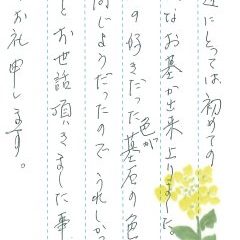 達にとっては初めての
なお墓が出来上りました
の好きだった色が墓石の色
同じようだったのでうれしかっ
とお世話頂きました事
お礼申します。